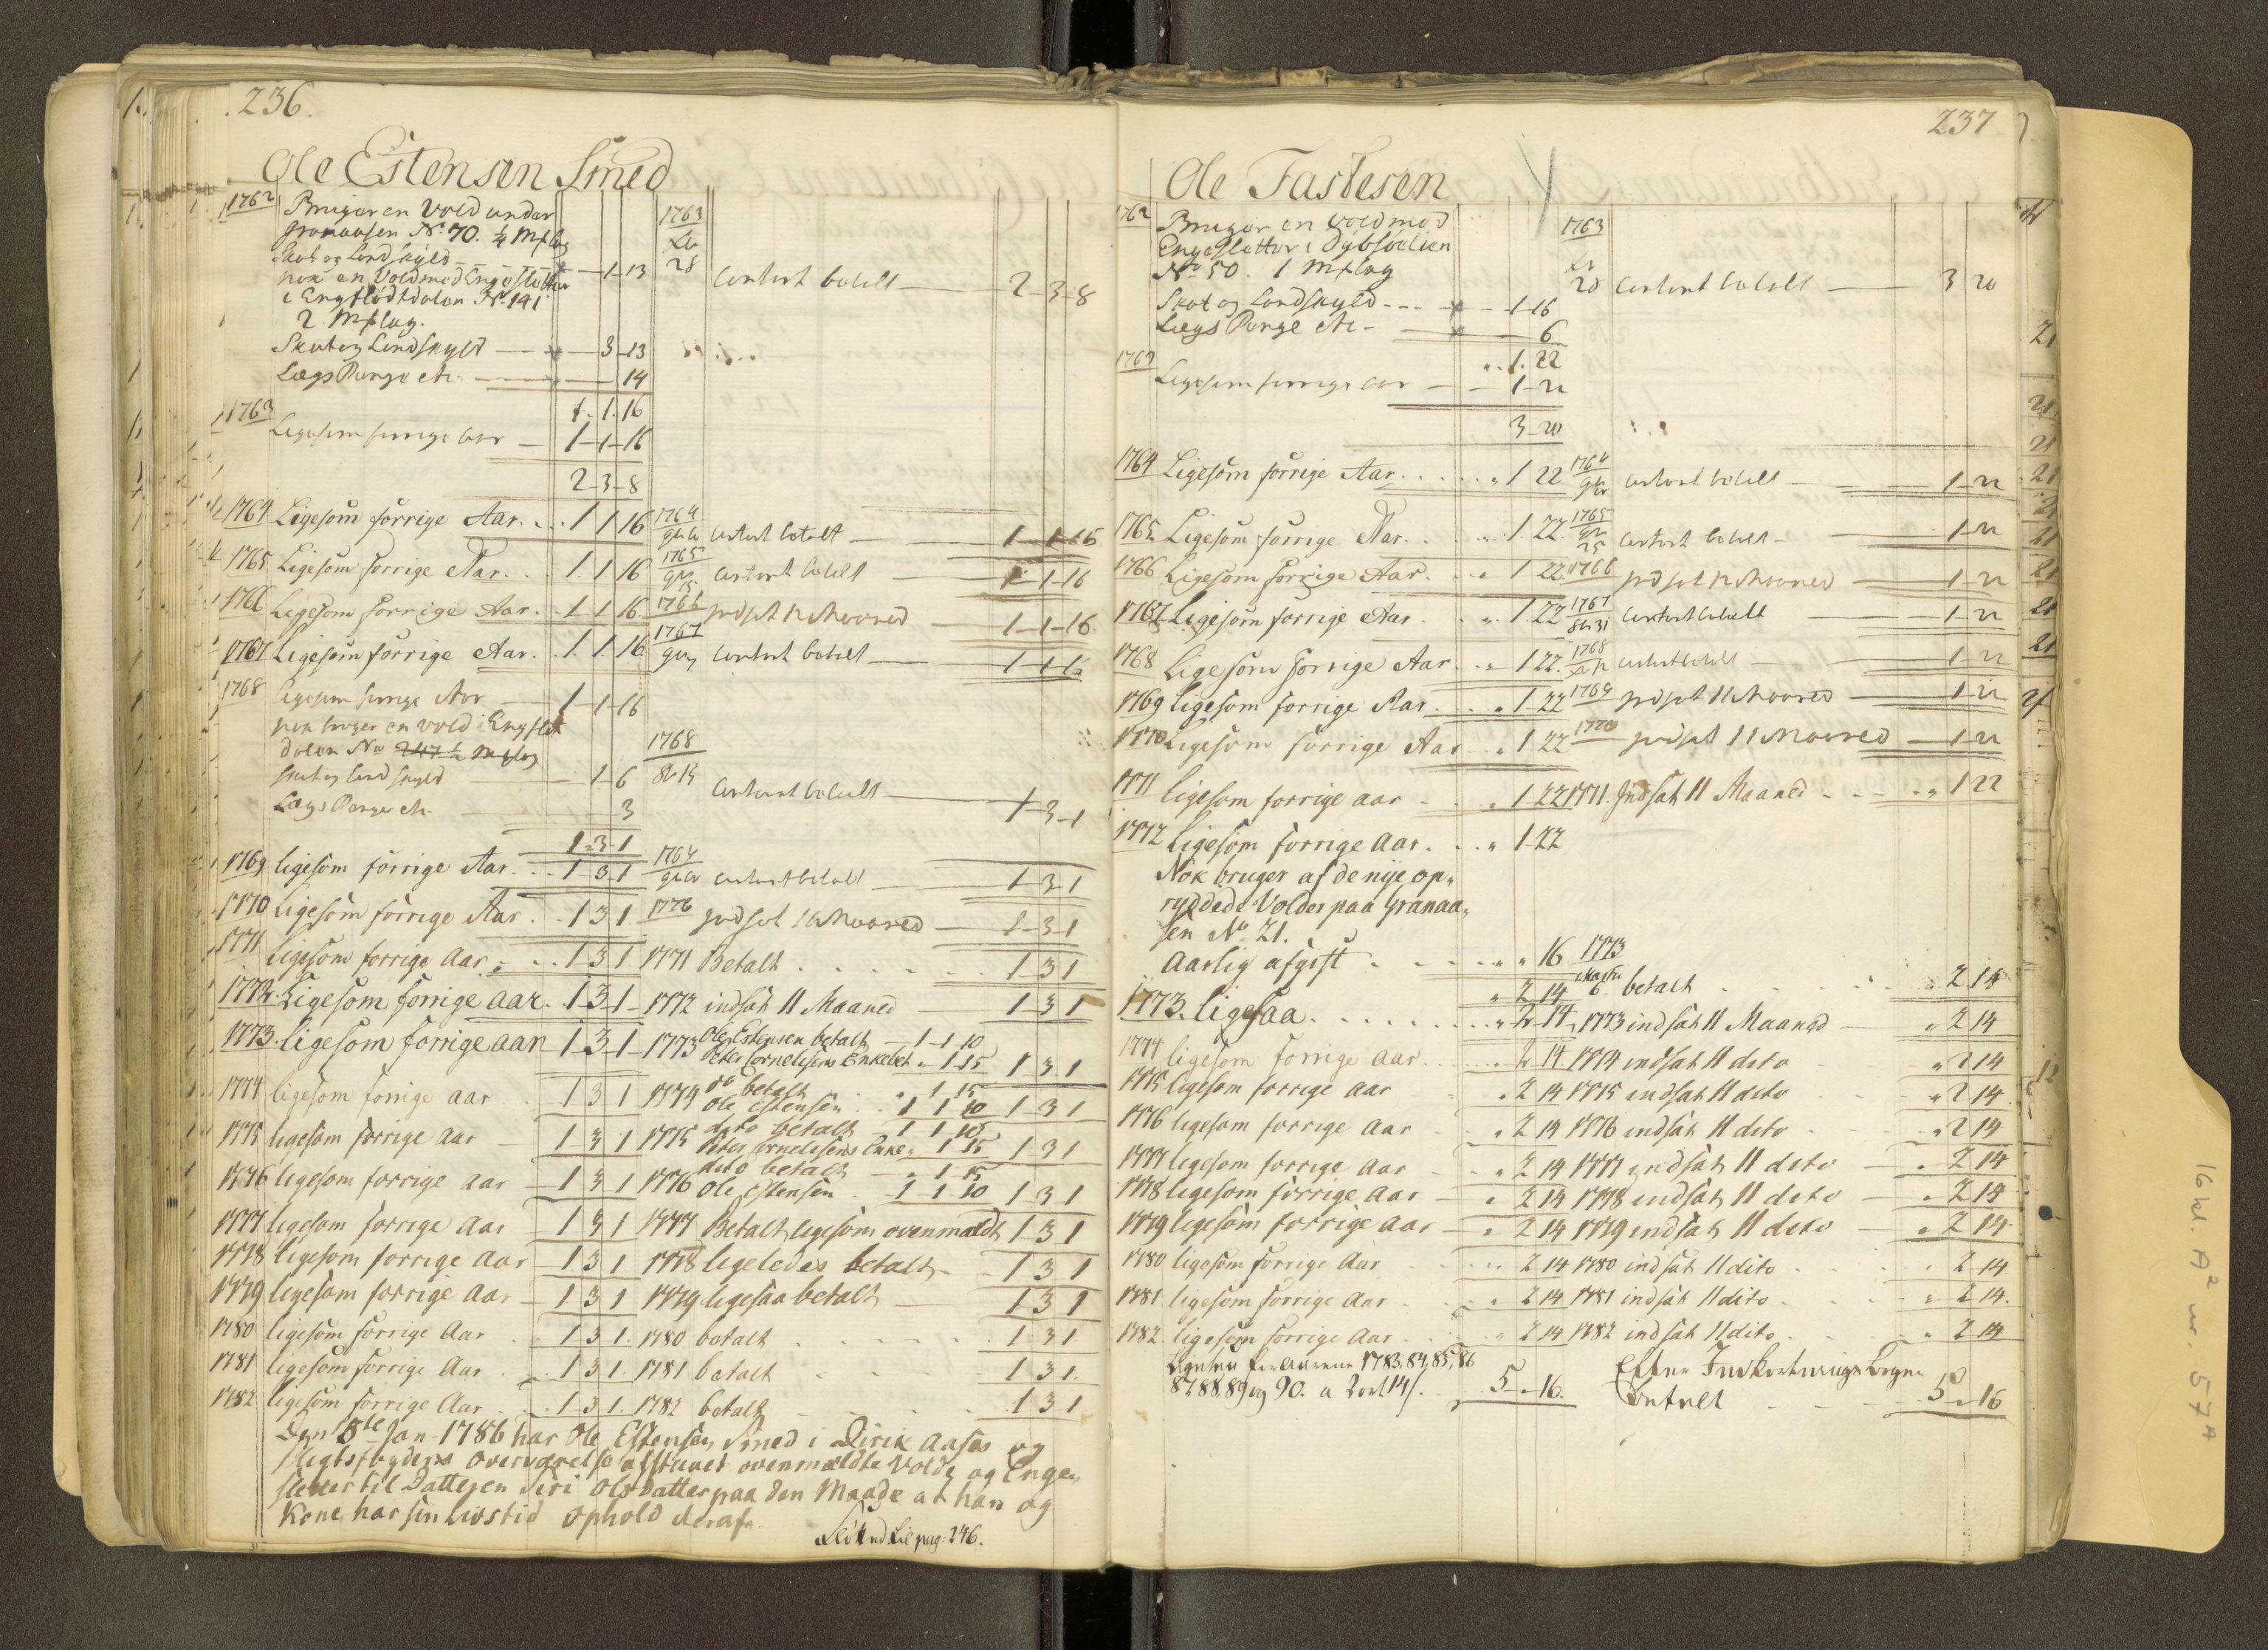 236.
Ole Estensen Smed
1762 Bruger en Vold under
Granaasen No. 70. 1/4 Mæslag
Skat og Landskyld - - - 1-13
nok en Vold med Engesletter
i Engslödtdalen No. 141
2. Mælag.
Skat og Landskyld - 3-13
Lægs Penge etc. - 14
1. 1. 16
1763 Ligesom forrige aar - 1-1-16
2-3-8
1763
28 contant betalt - 2-3-8
1764 Ligesom forrige Aar. . . 1 1 16 1764 contant betalt - 1-1-16
1765 Ligesom forrige Aar. . . 1. 1 16 1765 contant betalt - 1-1-16
1766 Ligesom forrige Aar. - 1 1 16 1766 indsat 12 Maaned - 1-1-16
1767 Ligesom forrige Aar. . 1. 1. 16 1767 contant betalt - 1-1-16
1768 Ligesom forrige Aar - 1-1-16
nok bruger en Vold i Engslet
dalen No 247 1/2 Mælag
Skat og Landskyld - 1-6
Lægs Penge etc. - 3
1-3-1
1768
contant betalt - 1-3-1
1769 ligesom forrige Aar. . . 1-3-1 1769 contant betalt - 1-3-1
1770 ligesom forrige Aar. . 1 3 1 1770 indsat 11 Maaned - 1-3-1
1771 ligesom forrige Aar. . . 1 3 1 1771 Betalt . . . . . . 1 3 1
1772. Ligesom forrige aar. . 1 3 1 - 1772 indsat 11 Maaned - 1-3 1
1773. ligesom forrige aar 1-3-1- 1773 Ole Estensen betalt - 1-1-10
Peter Cornelisens Enke bet. " 1-15 1 3 1
1774 ligesom forrige aar . . 1 3 1 1774 do betalt " 1 15
Ole Estensen . . 1 1 10 1-3 1
1775 ligesom forrige aar - 1 3 1 1775 dito betalt - 1 1 10
Peter Cornelisens Enke " 1 15 1 3 1
1776 ligesom forrige aar - 1 3 1 1776 dito betalt - " 1 15
Ole Estensen - 1-1-10 1 3 1
1777 ligesom forrige aar - 1 3 1 1777 Betalt ligesom ovenmældt 1 3 1
1778 ligesom forrige Aar - 1 3 1 1778 ligeledes betalt - 1 3 1
1779 ligesom forrige Aar - 1 3 1 1779 ligesaa betalt 1 3 1
1780 ligesom forrige Aar . . 1 3 1. 1780 betalt . . . . 1 3 1
1781 ligesom forrige Aar . . 1 3 1. 1781 betalt . . . . 1 3 1.
1782 ligesom forrige Aar . . 1 3 1. 1782 betalt . . . . 1 3 1
Den 8te Jan. 1786 har Ole Estensen Smed i Dirik Aases og
overværelse afstaaet ovenmældte Vold og Enge
sletter til Datteren Siri Olsdatter paa den Maade at han og
Kone har sin Livstid Ophold deraf.
Flötted til pag. 246.
237
Ole Fastesen
1762 Bruger en Vold med
Engesletter i Dybsiölien
No 50. 1 Mælag
Skat og Landskyld - - - 1-16
Lægs Penge etc. - 6
". 1. 22
1763 Ligesom forrige aar - - 1-22
3-20
1763
20 contant betalt - 3 20
1764 Ligesom forrige Aar. . . . . " 1 22 1764 contant betalt - 1-22
1765 Ligesom forrige Aar. . . " 1. 22. 1765 contant betalt - 1-22
1766 Ligesom forrige Aar. . . " 1 22. 1766 indsat 12 Maaned - 1-22
1767 Ligesom forrige Aar . ". 1. 22 1767 contant betalt - 1-22
1768 Ligesom forrige Aar . . " 1 22. 1768 contant betalt - 1-22
1769 ligesom forrige Aar. . . " 1-22 1769 indsat 11 Maaned - 1-22
1770 ligesom forrige Aar . . " 1 22 1770 indsat 11 Maaned - 1-22
1771 ligesom forrige aar - . " 1-22 1771. Indsat 11 Maaned - - - " 1 22
1772 ligesom forrige Aar. . . " 1-22
Nok bruger af de nye op-
ryddede Volder paa Granaa-
sen No 21.
Aarlig afgift . . . . " " 16 1773
" 2 14 6. betalt . . . . 2 14
1773. ligesaa. . . . . . . . " 2-14, 1773 indsat 11 Maaned - " 2 14
1774 ligesom forrige aar . . . . . " 2 14. 1774 indsat 11 dito - " 2 14
1775 ligesom forrige aar . " 2 14 1775 indsat 11 dito . . " 2 14
1776 ligesom forrige aar - " 2 14 1776 indsat 11 dito - " 2 14
1777 ligesom forrige aar - " 2 14 1777 indsat 11 dito - " 2 14
1778 ligesom forrige aar - " 2 14 1778 indsat 11 dito - " 2 14
1779 ligesom forrige aar - " 2 14 1779 indsat 11 dito - " 2 14
1780 ligesom forrige Aar . . . " 2 14 1780 indsat 11 dito . . . . 2 14
1781 ligesom forrige Aar . . " 2 14 1781 indsat 11 dito . . . " 2 14.
1782 ligesom forrige Aar . . " 2 14 1782 indsat 11 dito . . . " 2 14
Ligesaa for Aarene 1783, 84, 85, 86
87, 88, 89 og 90. a 2 ort 14 s. . 5 " 16. Efter Indkortnings Bogen
Betalt . . . 5 " 16
16 kl. A² nr. 57 A